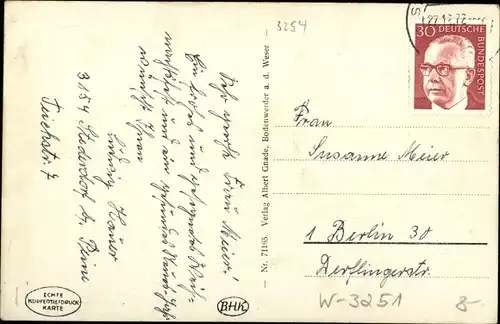 3254
27.12.72
30 DEUTSCHE
BUNDESPOST
Sehr geehrte Frau Meier!
Ein liebes und gesegnetes Weih-
nachtsfest und ein gesundes Neues Jahr
wünscht Ihnen
Ludwig Hauer
3154 Stederdorf bg. Peine
Teichstr. 7
Nr. 71/65 Verlag Albert Gnade, Bodenwerder a. d. Weser
Frau
Susanne Meier
1 Berlin 30
Derflingerstr.
W-3251
8-
ECHTE
KUPFERTIEFDRUCK
KARTE
BHK